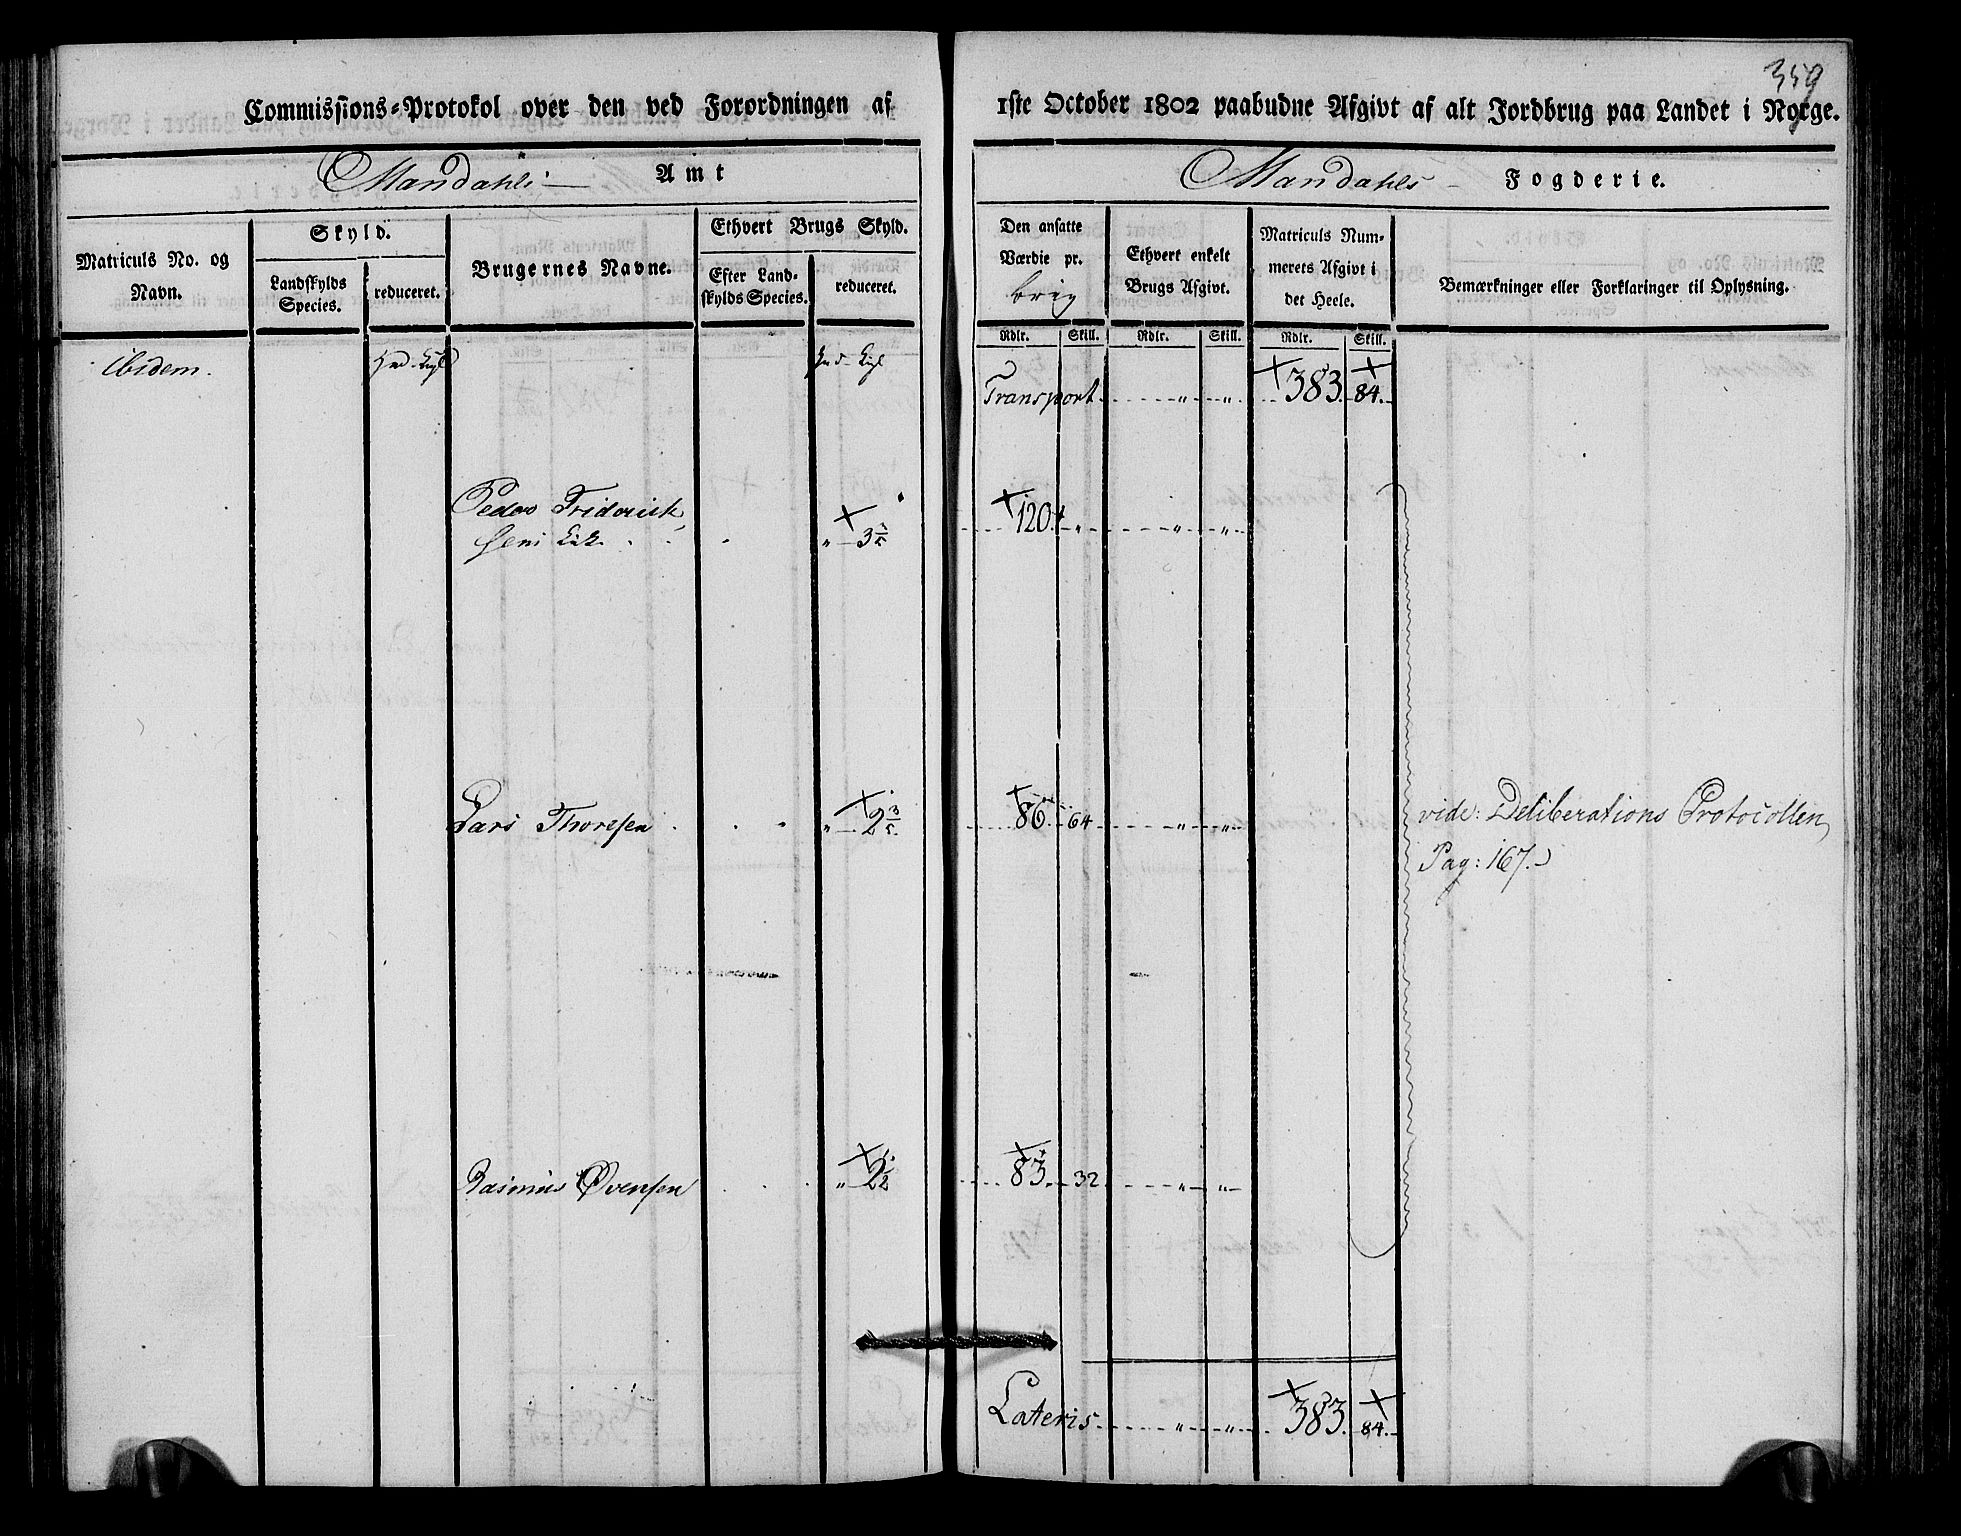 359
Commissions-Protokol over den ved Forordningen af 1ste October 1802 paabudne Afgivt af alt Jordbrug paa Landet i Norge.
Mandahls Amt
Mandahls Fogderie.
Matriculs No. og Navn.
Skyld.
Landskylds Species.
reduceret.
Brugernes Navne.
Ethvert Brugs Skyld.
Efter Landskylds Species.
reduceret.
Den ansatte Værdie pr.
Ethvert enkelt Brugs Afgivt.
Matriculs Nummerets Afgivt i det Heele.
Bemærkninger eller Forklaringer til Oplysning.
Rdlr. Skill. Rdlr. Skill. Rdlr. Skill.
ibidem.
Transport " " 383. 84.
Peder Friderick
" 3 120. " " "
Lars Thoresen " 2 3/5. 86. 64 " "
vide: Deliberations Protocollen
Pag: 167.
Rasmus Øvensen " 2 1/2 83. 32 " "
Lateris " " 383. 84.